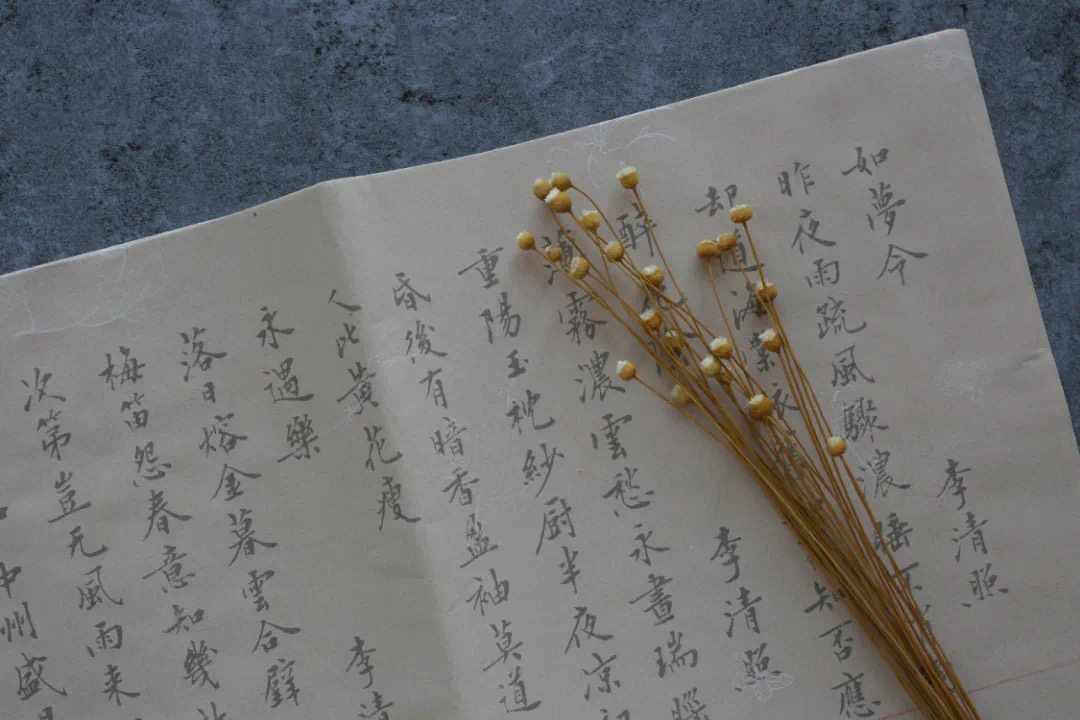 如夢令 李清照
昨夜雨疏風驟濃睡不
却道海棠依知否應
醉 李清照
薄霧濃雲愁永晝瑞腦
重陽玉枕紗厨半夜凉初
昏後有暗香盈袖莫道
人比黄花瘦
永遇樂 李清
落日熔金暮雲合璧
梅笛怨春意知幾
次第豈无風雨来
中州盛